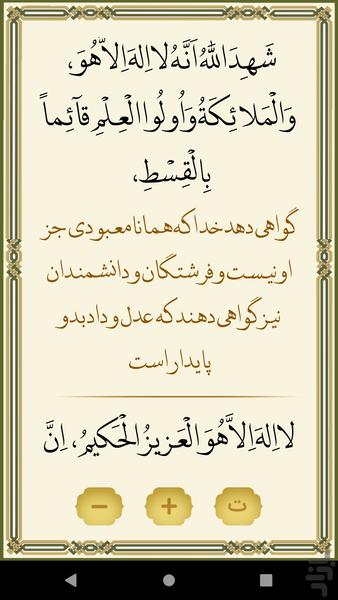 شَهِدَ اللّٰهُ اَنَّهُ لا اِلهَ اِلاّ هُوَ،
وَالْمَلائِكَةُ وَ اُولُوا الْعِلْمِ قآئِماً
بِالْقِسْطِ،
گواهی دهد خدا که همانا معبودی جز
او نیست و فرشتگان و دانشمندان
نیز گواهی دهند که عدل و داد بدو
پایدار است
لا اِلهَ اِلاَّ هُوَ الْعَزیزُ الْحَکیمُ، اِنَّ
− + ت
بازار